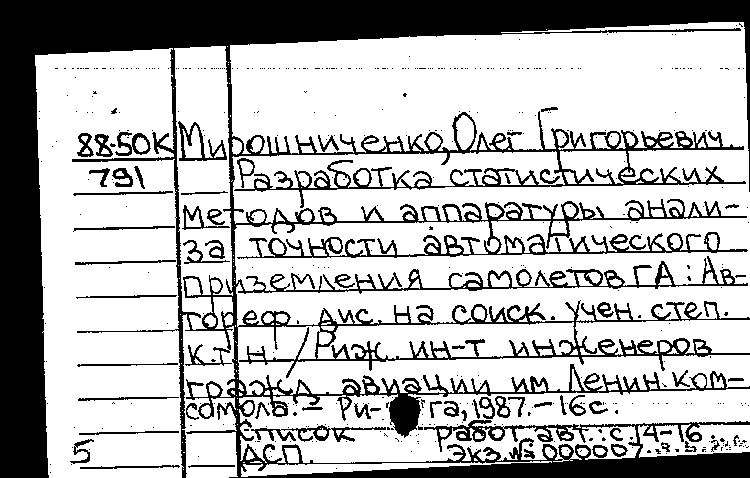 88-50К Мирошниченко, Олег Григорьевич
791 Разработка статистических
методов и аппаратуры анали-
за точности автоматического
приземления самолетов ГА : Ав-
тореф. дис. на соиск. учен. степ.
к.т.н. / Риж. ин-т инженеров
гражд. авиации им. Ленин. ком-
сомола. - Ри-га, 1987. - 16 с.
Список работ авт.: с. 14-16
5 ДСП. Экз. № 000007